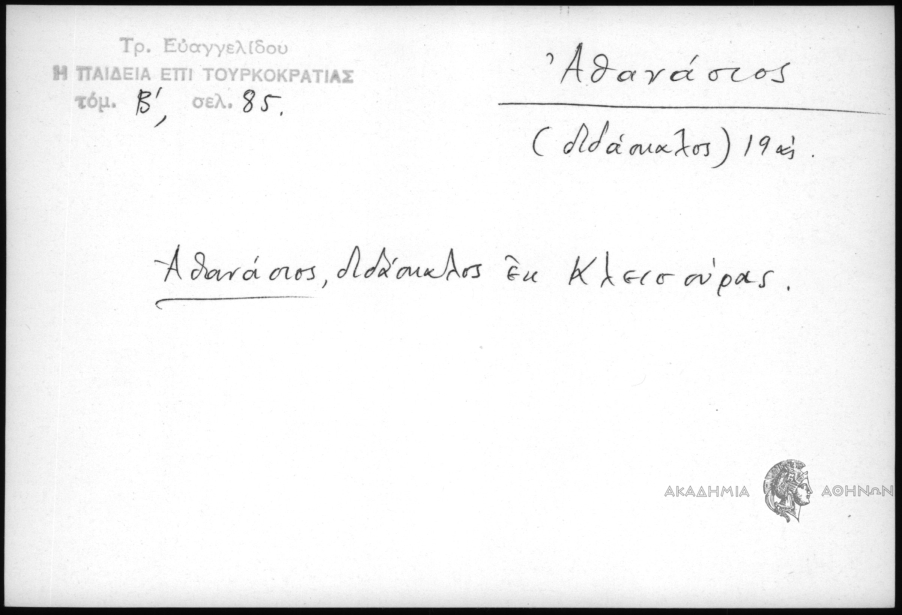 Τρ. Εὐαγγελίδου
Η ΠΑΙΔΕΙΑ ΕΠΙ ΤΟΥΡΚΟΚΡΑΤΙΑΣ
τόμ. Β', σελ. 85.
Ἀθανάσιος
(διδάσκαλος) 19 αἰ.
Ἀθανάσιος, διδάσκαλος ἐκ Κλεισούρας.
ΑΚΑΔΗΜΙΑ ΑΘΗΝΩΝ